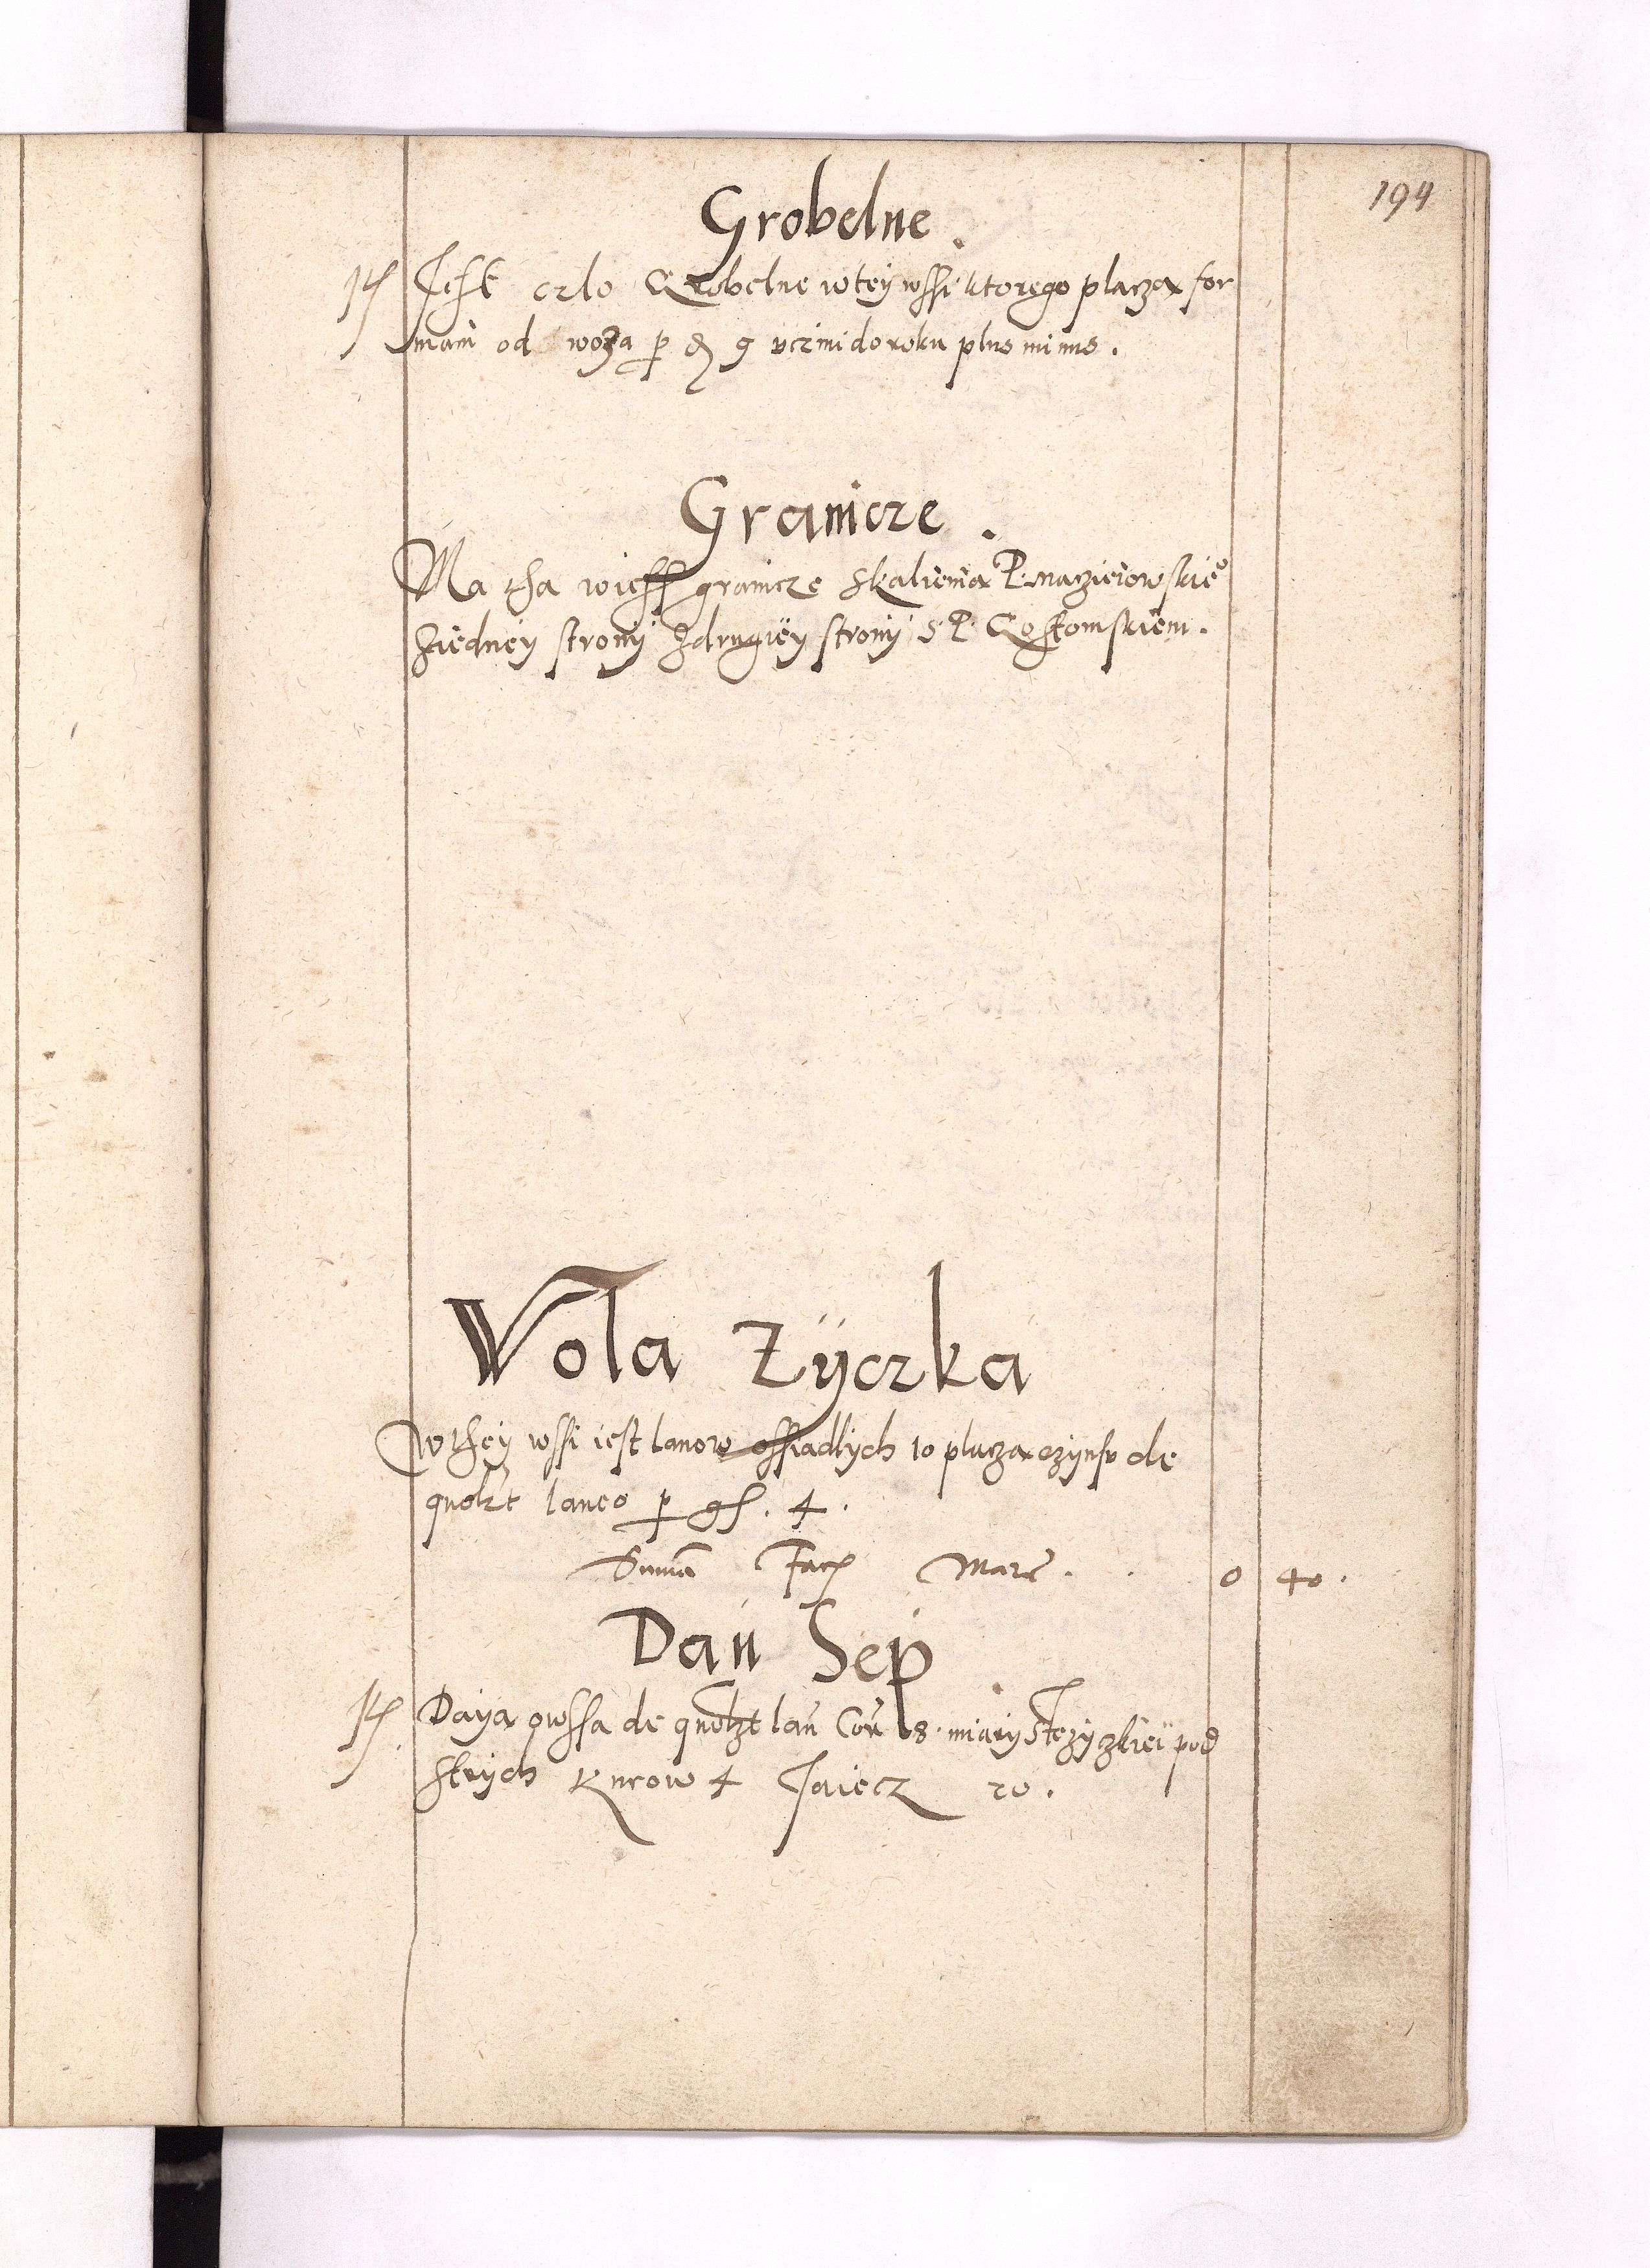 194
Grobelne.
Jest czlo Grobelne w tey wssi ktorego placza for
man od woza p 9 vczini do roku plus minus.
Granicze.
Ma tha wiess granicze skaliema P. maczieiowskie°
ziedney strony zdrugiey strony s P. Gostomskiem.
Wola Zÿczka
W they wssi iest lanow ossiadlych 10 placza czynsv de
quolzt laneo p gs. 4.
Summa Facz Marc. 0 40.
Dan Sep
Daya owssa de quolzt lan Cor 8. miary Stezyczkiei pod
strych Kurow 4 Jaiecz 20.